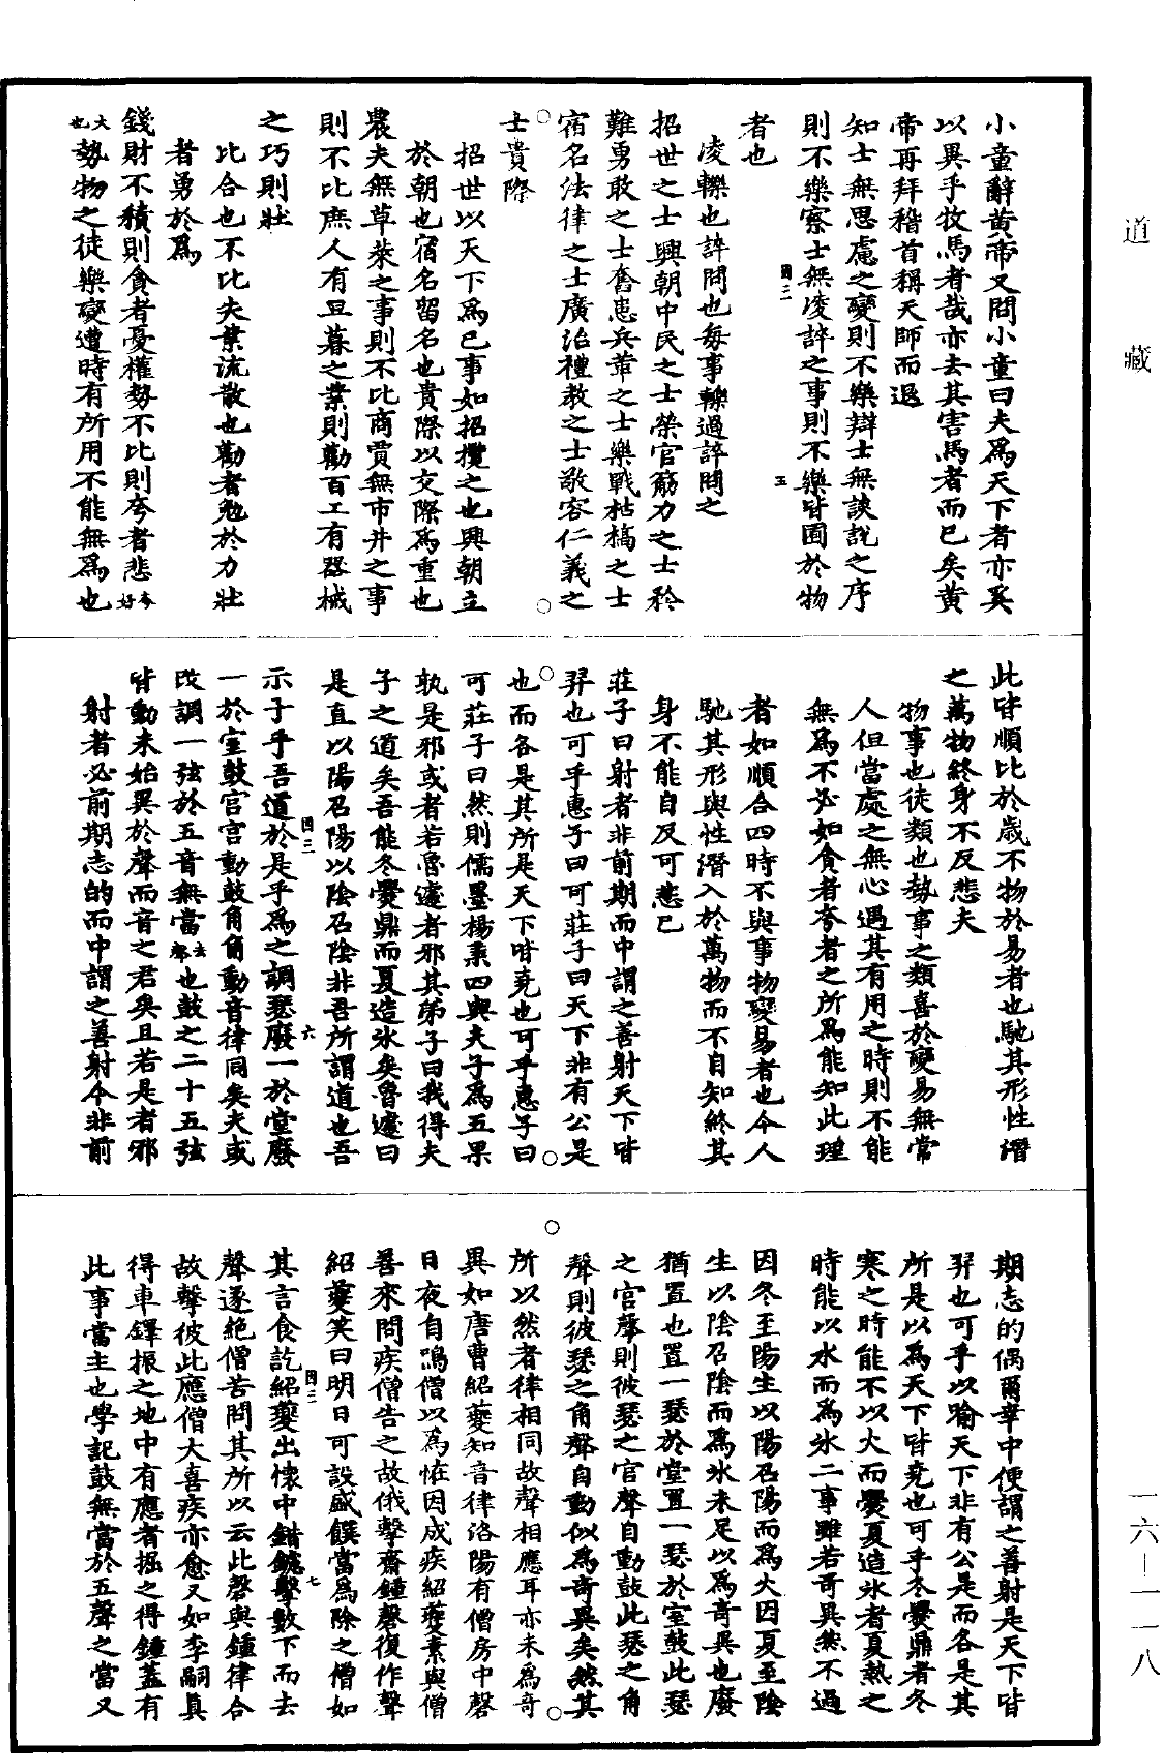 小童辭黃帝又問小童曰夫爲天下者亦奚
以異乎牧馬者哉亦去其害馬者而已矣黃
帝再拜稽首稱天師而退
知士無思慮之變則不樂辯士無談說之序
則不樂察士無凌誶之事則不樂皆囿於物
者也
凌轢也誶問也每事轢過誶問之
招世之士興朝中民之士榮官筋力之士矜
難勇敢之士奮患兵革之士樂戰枯槁之士
宿名法律之士廣治禮教之士敬容仁義之
士貴際
招世以天下爲己事如招攬之也興朝立
於朝也宿名留名也貴際以交際爲重也
農夫無草萊之事則不比商賈無市井之事
則不比庶人有旦暮之業則勸百工有器械
之巧則壯
比合也不比失業流散也勸者勉於力壯
者勇於爲
錢財不積則貪者憂權勢不比則夸者悲夸好
大也勢物之徒樂變遭時有所用不能無爲也
此皆順比於歲不物於易者也馳其形性潛
之萬物終身不反悲夫
物事也徒類也勢事之類喜於變易無常
人但當處之無心遇其有用之時則不能
無爲不必如貪者夸者之所爲能知此理
者如順合四時不與事物變易者也今人
馳其形與性潛入於萬物而不自知終其
身不能自反可悲已
莊子曰射者非前期而中謂之善射天下皆
羿也可乎惠子曰可莊子曰天下非有公是
也而各是其所是天下皆堯也可乎惠子曰
可莊子曰然則儒墨楊秉四與夫子爲五果
孰是邪或者若魯遽者邪其弟子曰我得夫
子之道矣吾能冬爨鼎而夏造氷矣魯遽曰
是直以陽召陽以陰召陰非吾所謂道也吾
示子乎吾道於是乎爲之調瑟廢一於堂廢
一於室鼓宮宮動鼓角角動音律同矣夫或
改調一弦於五音無當去聲也鼓之二十五弦
皆動未始異於聲而音之君矣且若是者邪
射者必前期志的而中謂之善射今非前
期志的偶爾幸中便謂之善射是天下皆
羿也可乎以喻天下非有公是而各是其
所是以爲天下皆堯也可乎冬爨鼎者冬
寒之時能不以火而爨夏造氷者夏熱之
時能以水而爲氷二事雖若奇異然不過
因冬至陽生以陽召陽而爲火因夏至陰
生以陰召陰而爲氷未足以爲奇異也廢
猶置也置一瑟於堂置一瑟於室鼓此瑟
之宮聲則彼瑟之宮聲自動鼓此瑟之角
聲則彼瑟之角聲自動似爲奇異矣然其
所以然者律相同故聲相應耳亦未爲奇
異如唐曹紹夔知音律洛陽有僧房中磬
日夜自鳴僧以爲恠因成疾紹夔素與僧
善來問疾僧告之故俄擊齋鐘磬復作聲
紹夔笑曰明日可設盛饌當爲除之僧如
其言食訖紹夔出懷中錯鑢擊數下而去
聲遂絶僧苦問其所以云此磬與鐘律合
故擊彼此應僧大喜疾亦愈又如李嗣眞
得車鐸振之地中有應者掘之得鐘蓋有
此事當主也學記鼓無當於五聲之當又
國三
五
國三
六
國三
七
道藏
一六—一一八